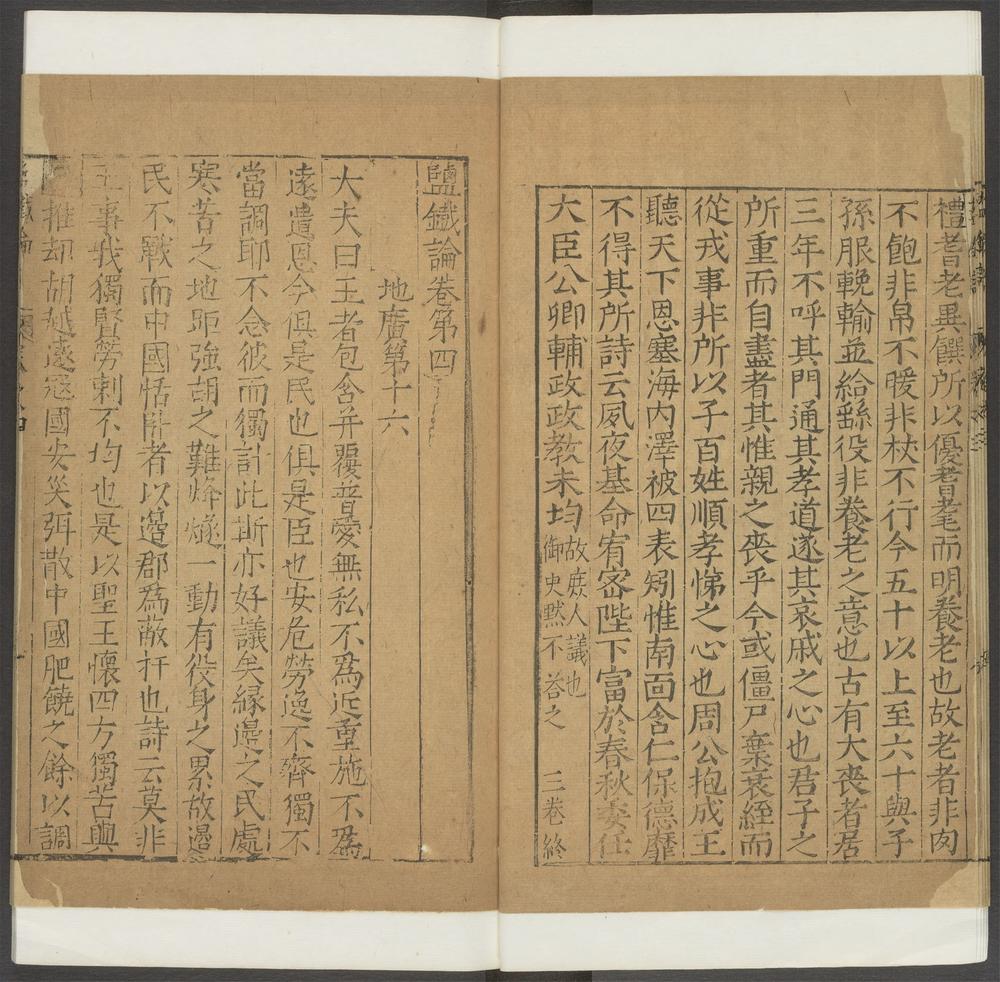 禮耆老異饌所以優耆耄而明養老也故老者非肉
不飽非帛不暖非杖不行今五十以上至六十與子
孫服輓輸並給繇役非養老之意也古有大喪者居
三年不呼其門通其孝道遂其哀戚之心也君子之
所重而自盡者其惟親之喪乎今或僵尸棄衰絰而
從戎事非所以子百姓順孝悌之心也周公抱成王
聽天下恩塞海内澤被四表矧惟南面含仁保德靡
不得其所詩云夙夜基命宥密陛下富於春秋委任
大臣公卿輔政政教未均故庶人議也
御史黙不荅之 三卷終
鹽鐵論卷第四
地廣第十六
大夫曰王者包含并覆普愛無私不爲近重施不爲
遠遺恩今俱是民也俱是臣也安危勞逸不齊獨不
當調耶不念彼而獨計此斯亦好議矣緣邊之民處
寒苦之地距強胡之難烽燧一動有没身之累故邊
民百戰而中國恬卧者以邊郡爲蔽扞也詩云莫非
王事我獨賢勞刺不均也是以聖王懷四方獨苦興
推却胡越遠冦國安灾弭散中國肥饒之餘以調